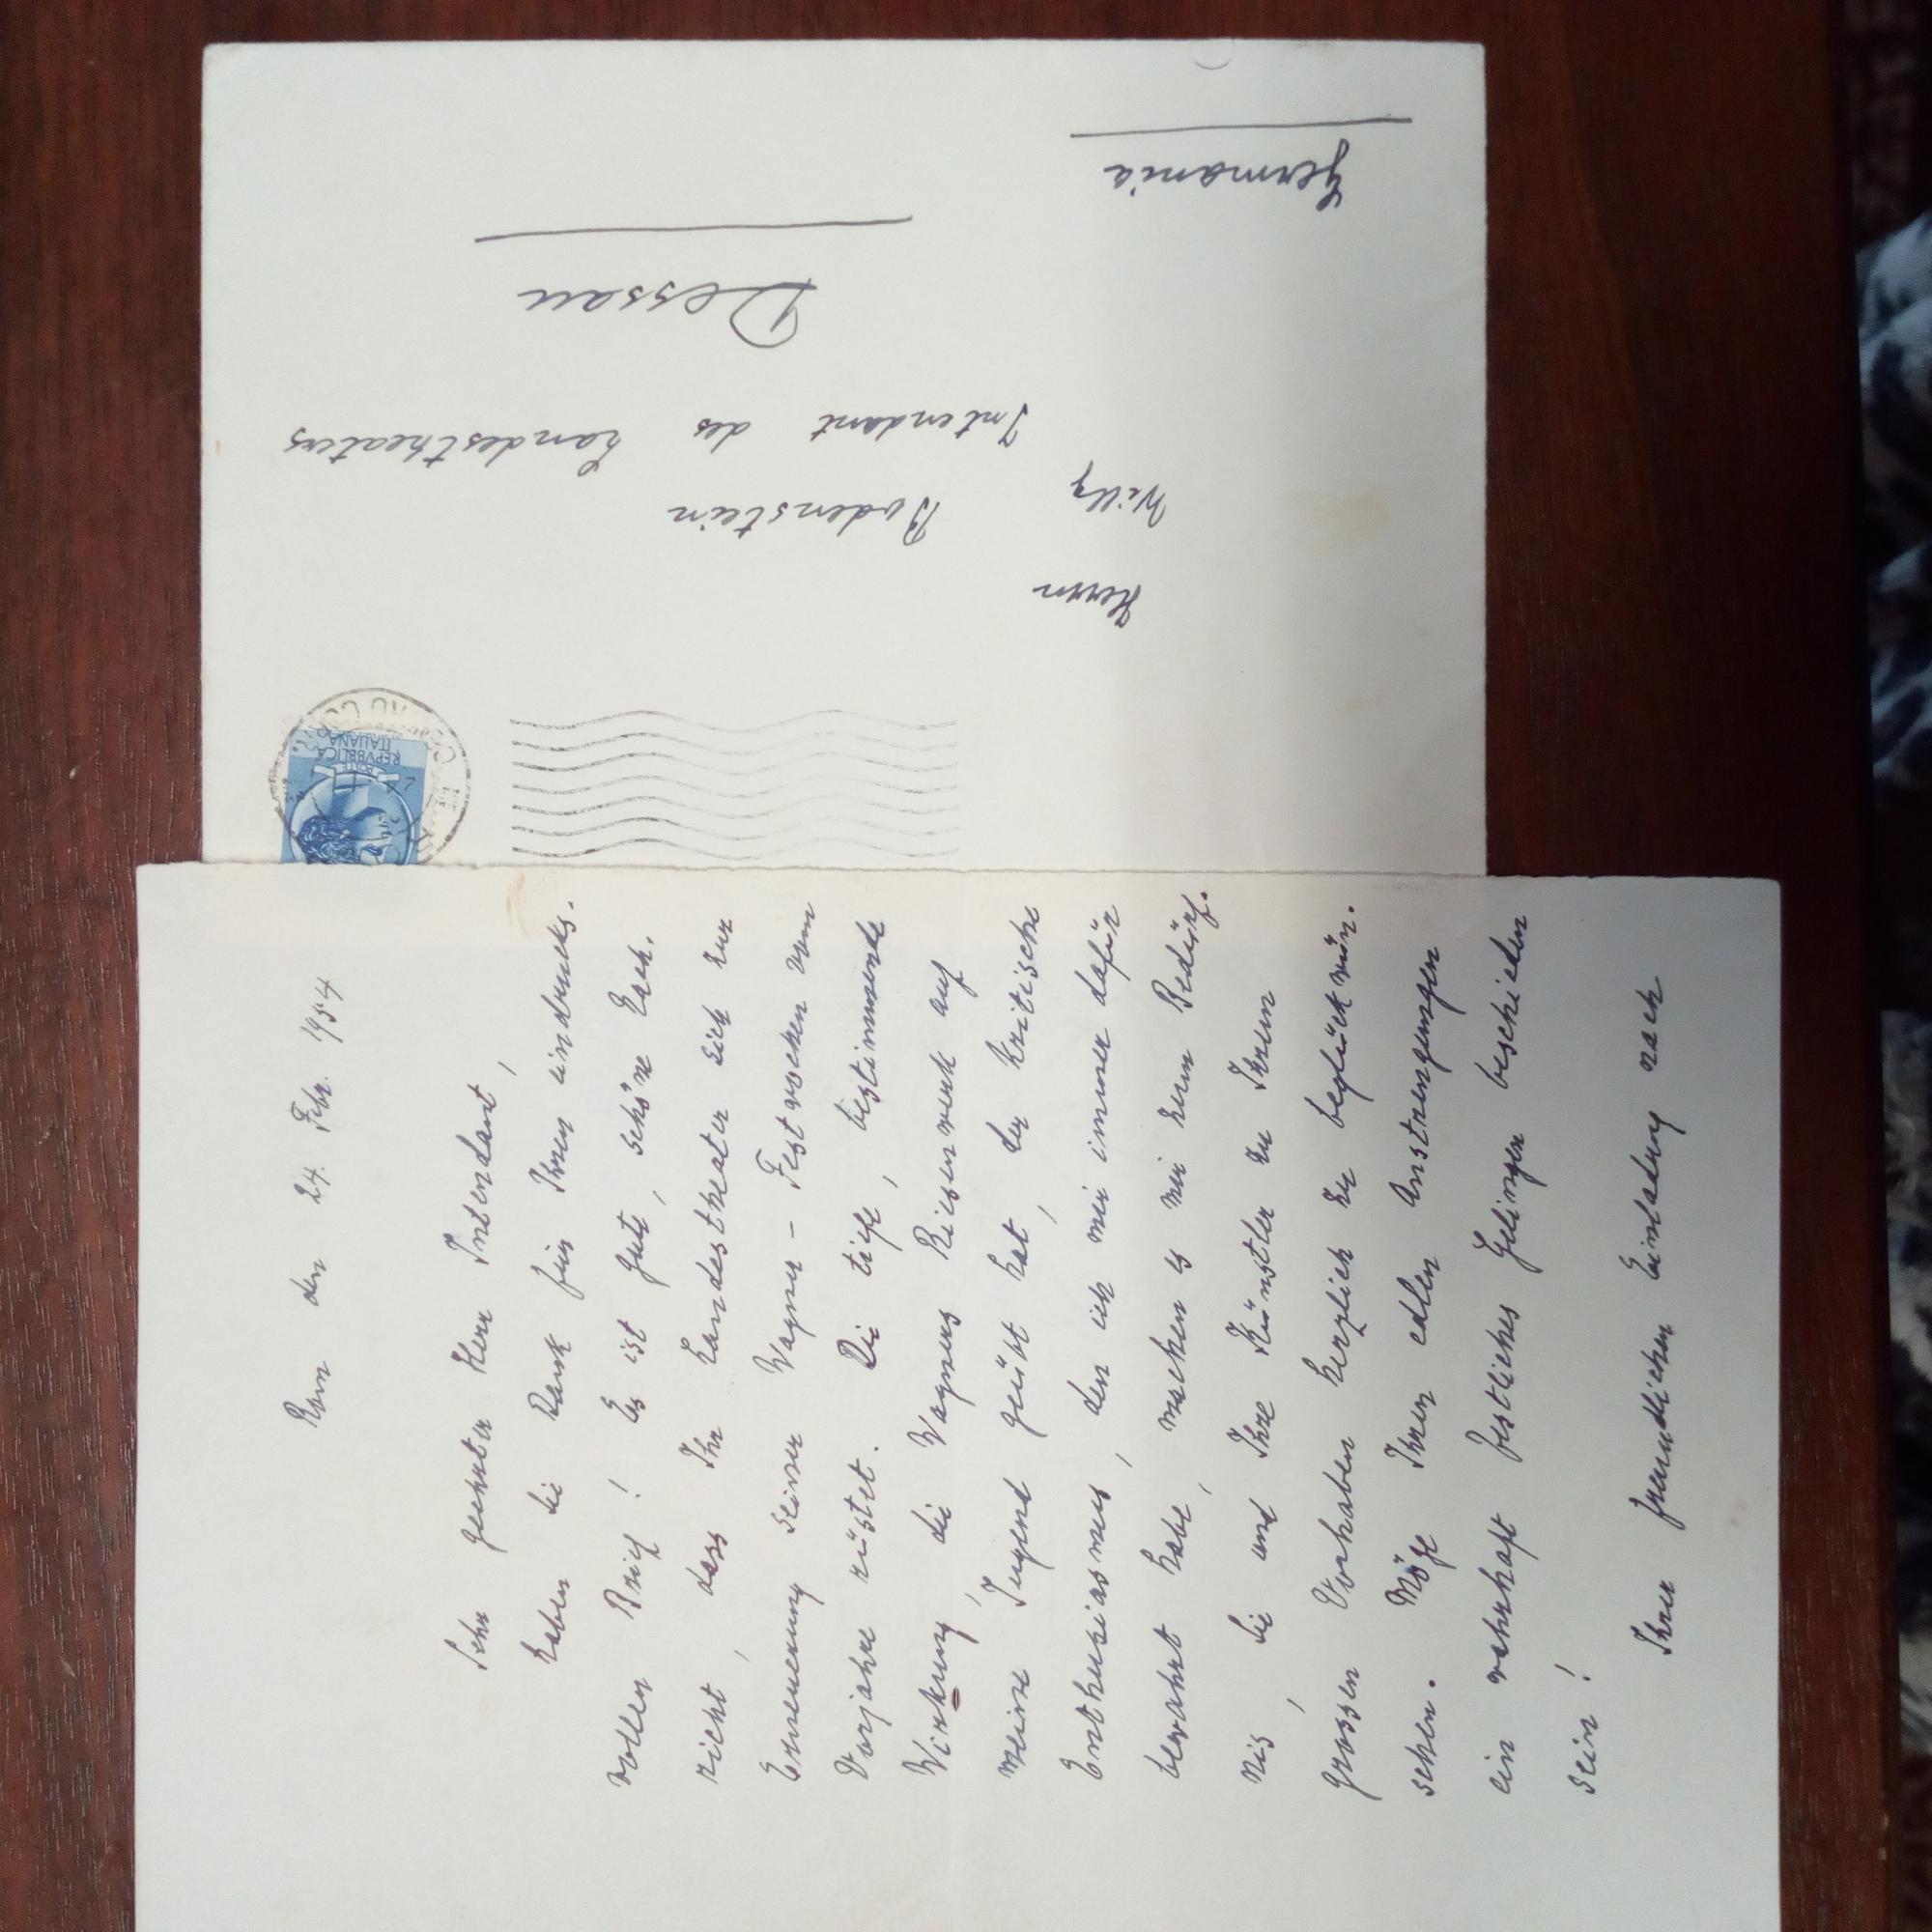 Herrn
Willy Bodenstein
Intendant des Landestheaters
Dessau
Germania
POSTE
REPVBBLICA
ITALIANA
Rom den 24. Febr. 1954
Sehr geehrter Herr Intendant,
haben Sie Dank für Ihren eindrucks-
vollen Brief! Es ist gute, schöne Nach-
richt, dass Ihr Landestheater sich zur
Erneuerung seiner Wagner-Festwochen vom
Vorjahre rüstet. Die tiefe, bestimmende
Wirkung, die Wagners Riesenwerk auf
meine Jugend geübt hat, der kritische
Enthusiasmus, den ich mir immer dafür
bewahrt habe, machen es mir zum Bedürf-
nis, Sie und Ihre Künstler zu Ihrem
grossen Vorhaben herzlich zu beglückwün-
schen. Möge Ihren edlen Anstrengungen
ein wahrhaft festliches Gelingen beschieden
sein!
Ihrer freundlichen Einladung nach